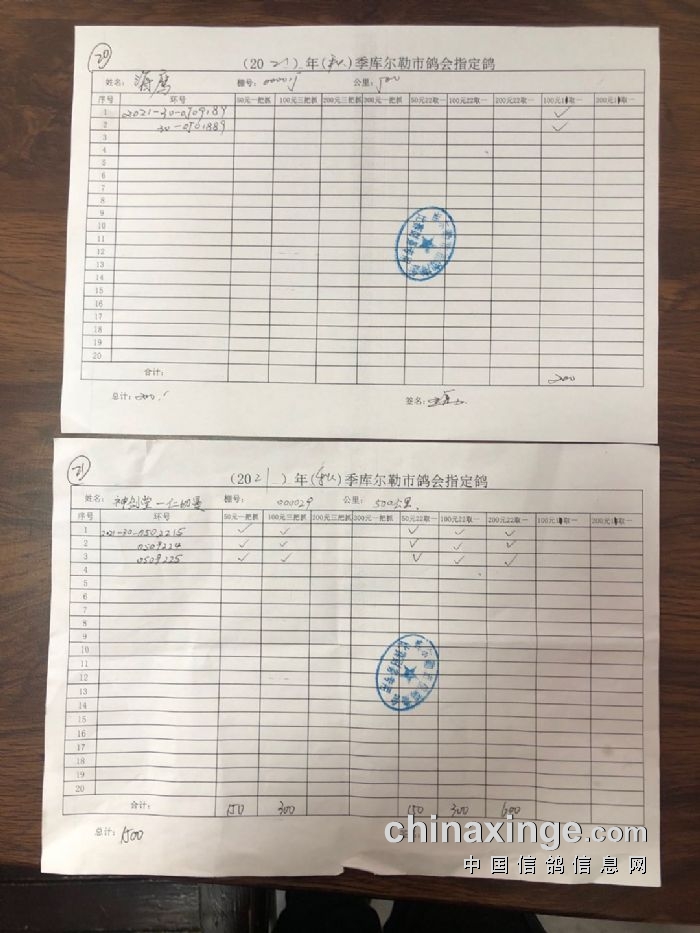 20
(2021) 年 (秋) 季库尔勒市鸽会指定鸽
姓名： 海鹰 棚号： 公里： 500
序号 环号 50元一把抓 100元三把抓 200元三把抓 300元一把抓 50元22取一 100元22取一 200元22取一 100元1取一 200元1取一
1 2021-30-0909189 ✓
2 30-0901889 ✓
3
4
5
6
7
8
9
10
11
12
13
14
15
16
17
18
19
20
合计： 200
总计：200.
签名：
21
(2021) 年 (秋) 季库尔勒市鸽会指定鸽
姓名： 神剑堂一仁 棚号： 000029 公里： 500公里.
序号 环号 50元一把抓 100元三把抓 200元三把抓 300元一把抓 50元22取一 100元22取一 200元22取一 100元1取一 200元1取一
1 2021-30-0502215 ✓ ✓ ✓ ✓ ✓
2 0509224 ✓ ✓ ✓ ✓ ✓
3 0509225 ✓ ✓ ✓ ✓ ✓
4
5
6
7
8
9
10
11
12
13
14
15
16
17
18
19
20
合计： 150 300 150 300 600
总计： 1500
chinaxinge.com
中国信鸽信息网